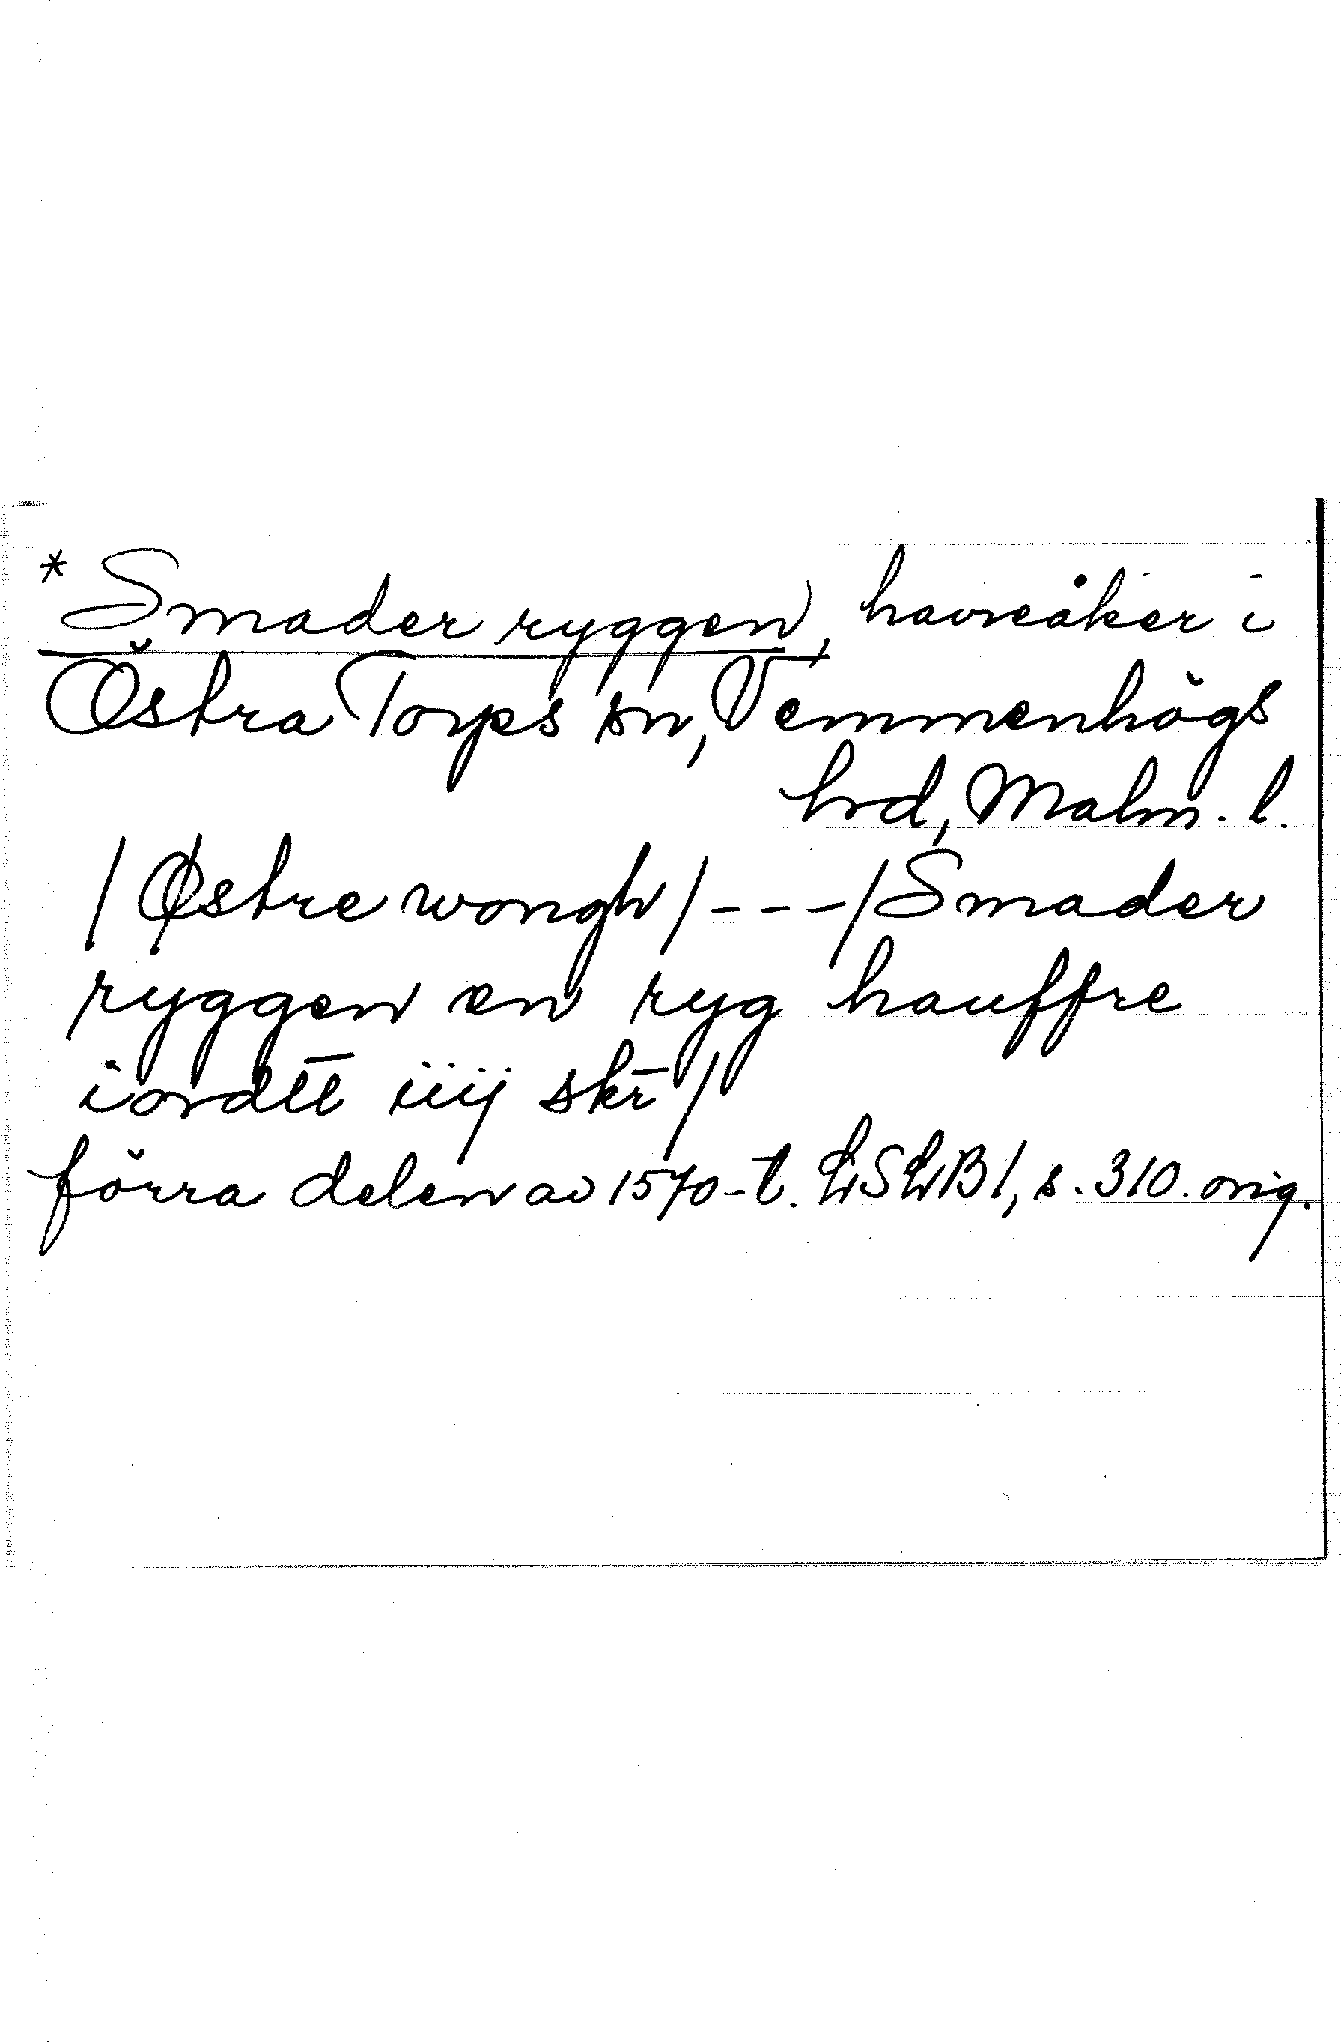 *Smader ryggen, havreåker i
Östra Torps sn, Vemmenhögs
hrd, Malm. l.
/Østre wongh/---/Smader
ryggen en ryg hauffre
iordtt iiij skr̄/
förra delen av 1570-t. LSLB1, s. 310. orig.